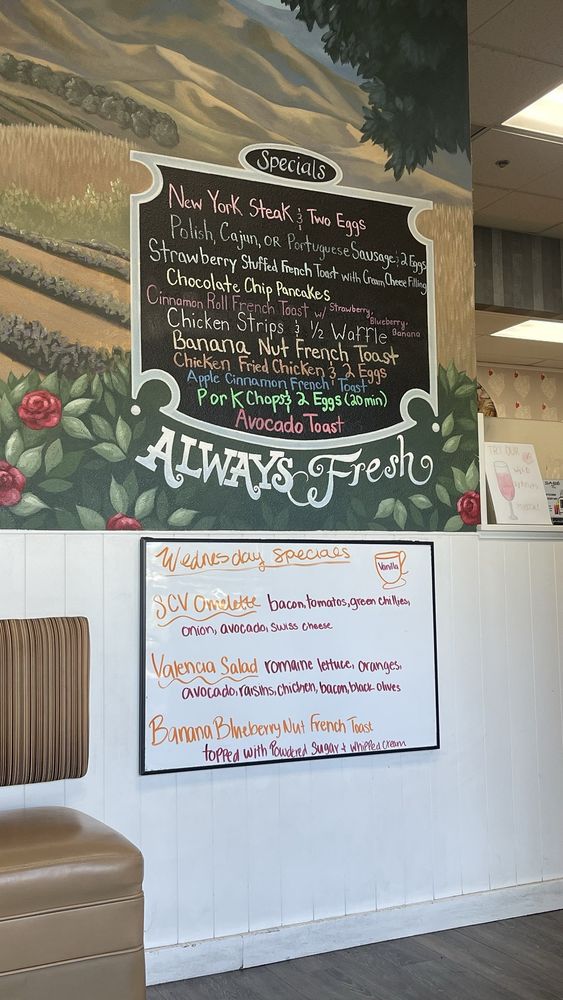 Specials
New York Steak & Two Eggs
Polish, Cajun, or Portuguese Sausage; 2 Eggs
Strawberry Stuffed French Toast with Cream Cheese Filling
Chocolate Chip Pancakes
Cinnamon Roll French Toast w/ Strawberry, Blueberry, Banana
Chicken Strips & 1/2 Waffle
Banana Nut French Toast
Chicken Fried Chicken & 2 Eggs
Apple Cinnamon French Toast
Pork Chops & 2 Eggs (20 min)
Avocado Toast
ALWAYS Fresh
TRY OUR
Wednesday Specials
Vanilla
SCV Omelette bacon, tomatos, green chilies,
onion, avocado, swiss cheese
Valencia Salad romaine lettuce, oranges,
avocado, raisins, chicken, bacon, black olives
Banana Blueberry Nut French Toast
topped with Powdered Sugar + whipped cream